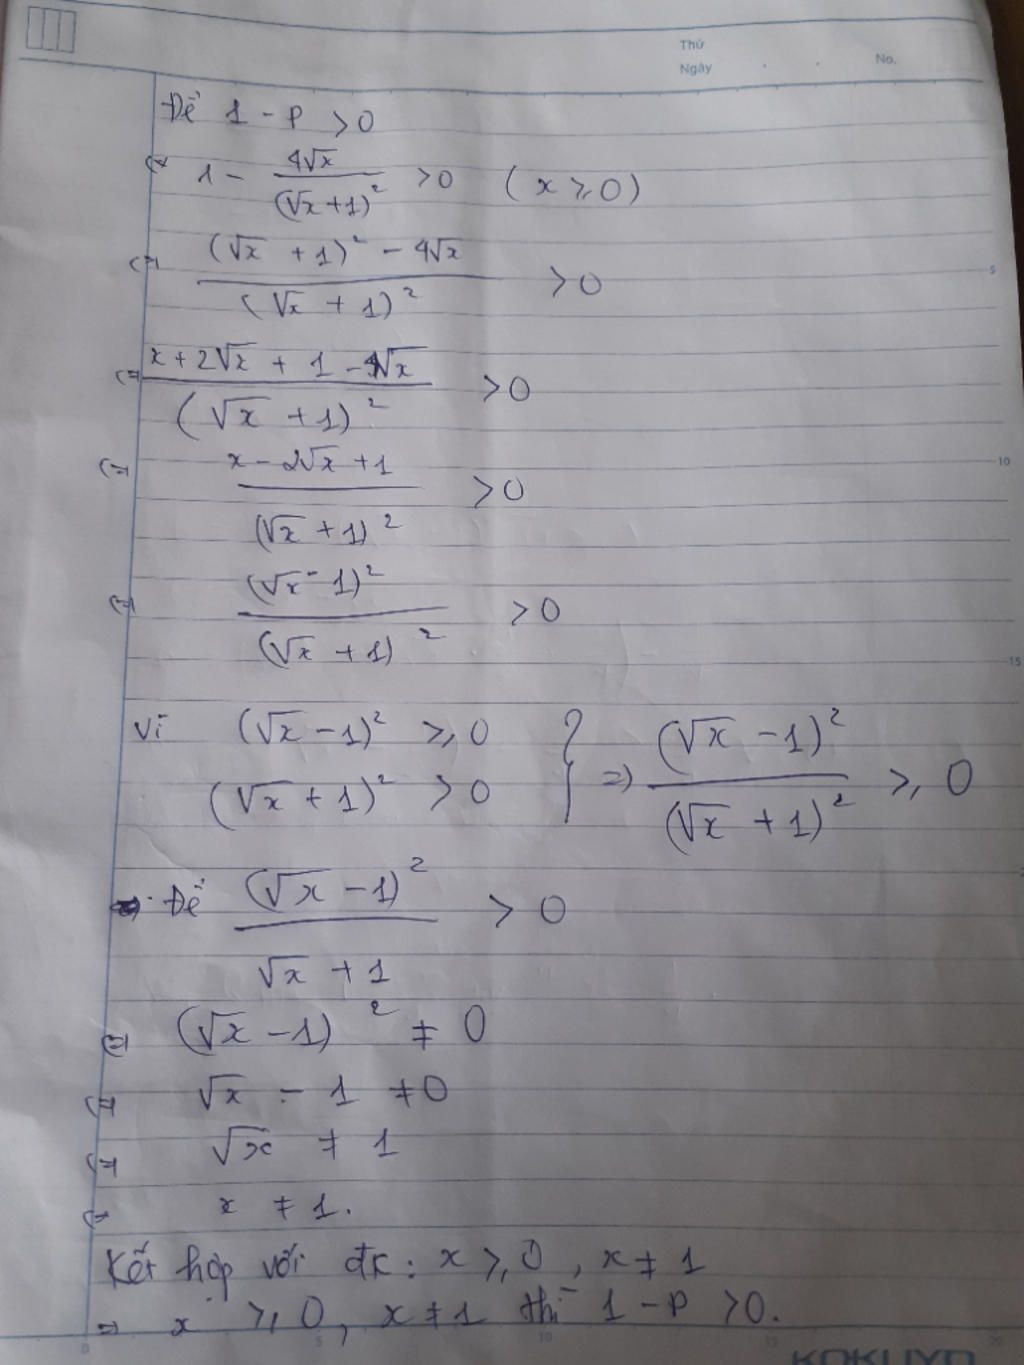 Thứ
Ngày
No.
Để 1 - P > 0
(=) 1 - 4√x / (√x + 1)² > 0 ( x ≥ 0 )
(=) (√x + 1)² - 4√x / (√x + 1)² > 0
5
(=) x + 2√x + 1 - 4√x / (√x + 1)² > 0
(=) x - 2√x + 1 / (√x + 1)² > 0
10
(=) (√x - 1)² / (√x + 1)² > 0
15
Vì (√x - 1)² ≥ 0
(√x + 1)² > 0 } => (√x - 1)² / (√x + 1)² ≥ 0
Để (√x - 1)² / √x + 1 > 0
(=) (√x - 1)² ≠ 0
(=) √x - 1 ≠ 0
(=) √x ≠ 1
(=) x ≠ 1.
Kết hợp với đk: x ≥ 0, x ≠ 1
=> x ≥ 0, x ≠ 1 thì 1 - P > 0.
0 5 10 15 20
KOKUYO